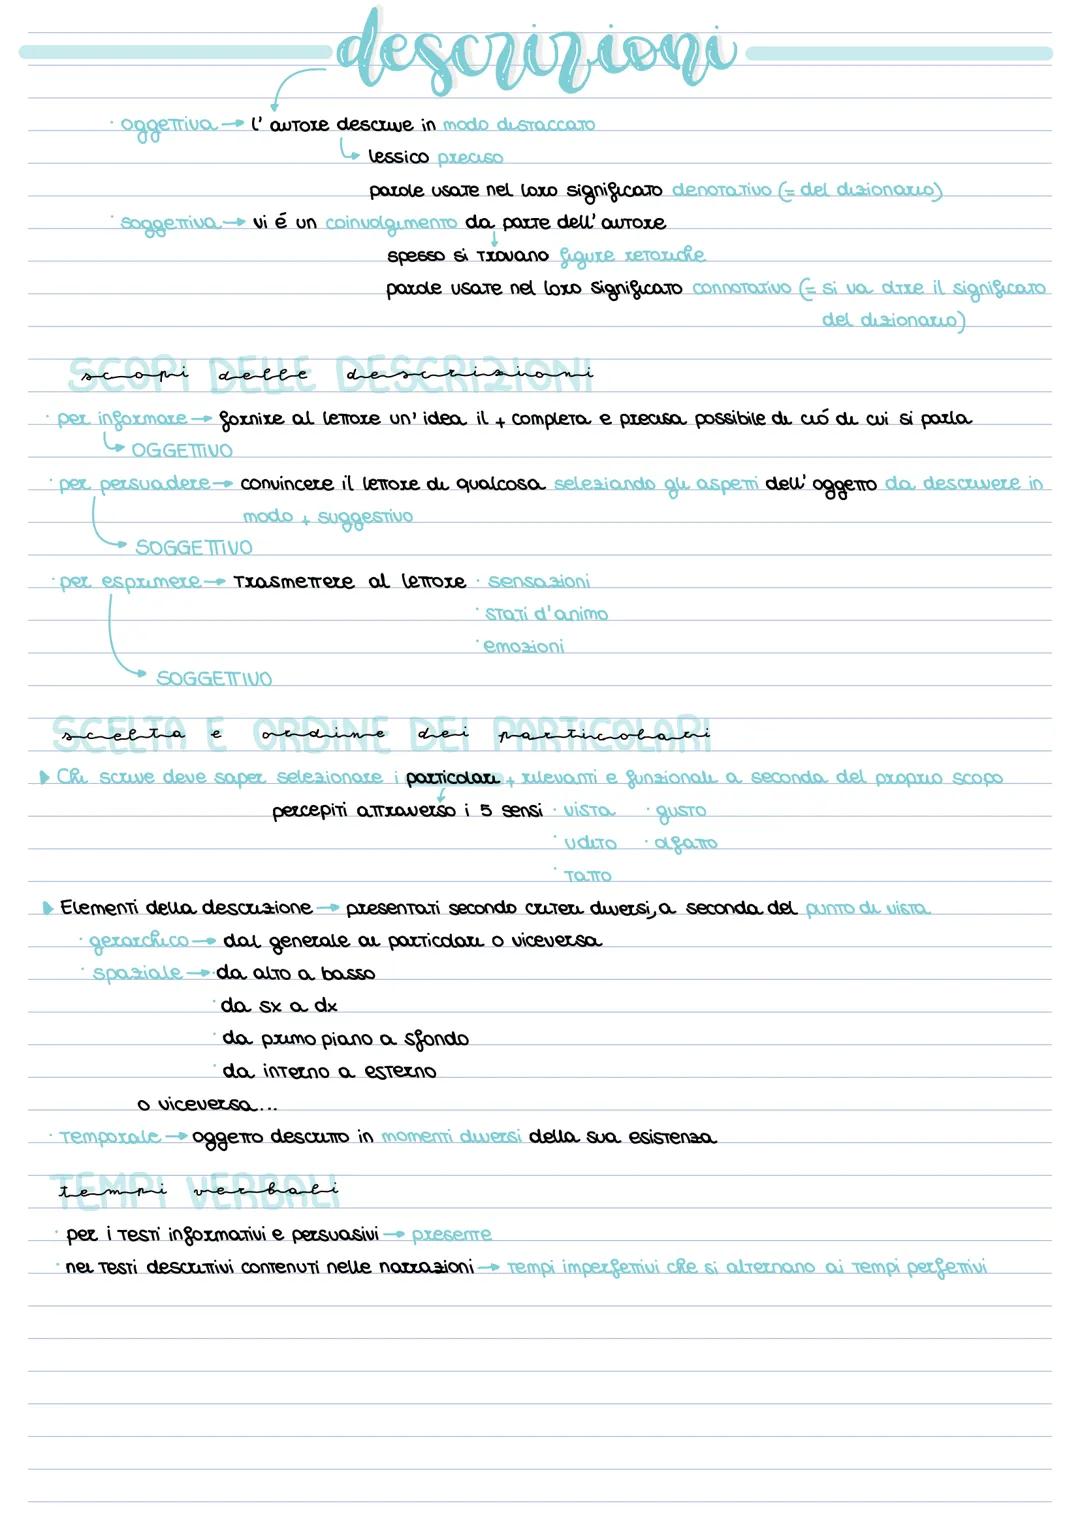 descrizioni
· oggettiva → l'autore descrive in modo distaccato
lessico preciso
parole usate nel loro significato denotativo (= del dizionario)
· soggettiva → vi é un coinvolgimento da parte dell'autore
spesso si trovano figure retoriche
parole usate nel loro significato connotativo (= si va oltre il significato
del dizionario)
SCOPI DELLE DESCRIZIONI
scopi delle descrizioni
· per informare → fornire al lettore un'idea il + completa e precisa possibile di ció di cui si parla
OGGETTIVO
· per persuadere → convincere il lettore di qualcosa seleziando gli aspetti dell'oggetto da descrivere in
modo + suggestivo
SOGGETTIVO
· per esprimere → trasmettere al lettore · sensazioni
· stati d'animo
· emozioni
SOGGETTIVO
SCELTA E ORDINE DEI PARTICOLARI
scelta e ordine dei particolari
Chi scrive deve saper selezionare i particolari + rilevanti e funzionali a seconda del proprio scopo
percepiti attraverso i 5 sensi · vista · gusto
· udito · olfatto
· tatto
Elementi della descrizione → presentati secondo criteri diversi, a seconda del punto di vista
· gerarchico → dal generale ai particolari o viceversa
· spaziale → · da alto a basso
· da sx a dx
· da primo piano a sfondo
· da interno a esterno
o viceversa...
· temporale → oggetto descritto in momenti diversi della sua esistenza
TEMPI VERBALI
tempi verbali
· per i testi informativi e persuasivi → presente
· nei testi descrittivi contenuti nelle narrazioni → tempi imperfettivi che si alternano ai tempi perfettivi